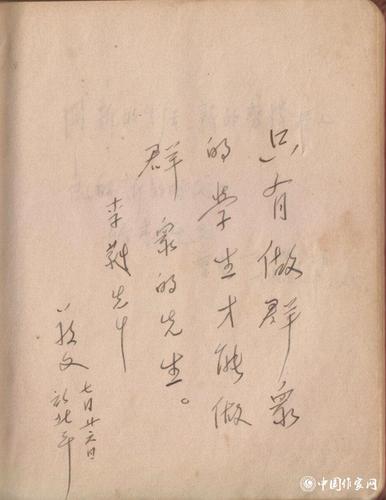 只有做群众
的学生才能做
群众的先生。
李
先生
文
七月廿六日
於北平
中国作家网